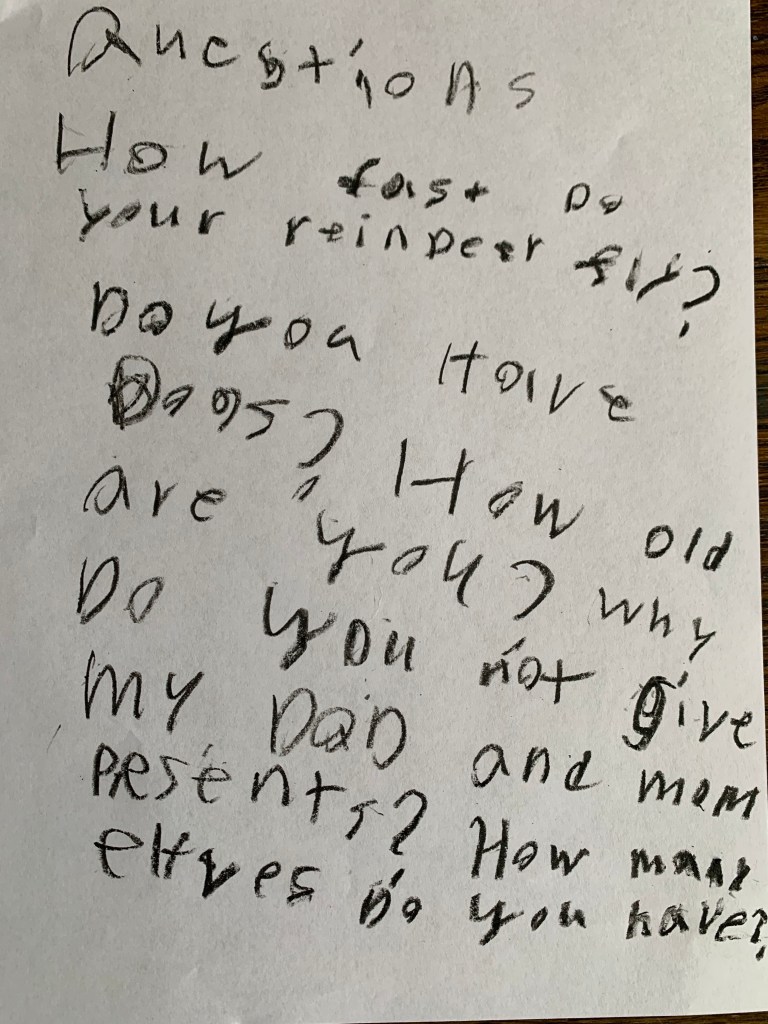 Questions
How fast Do
your reinDeer fly?
Do you Have
Dogs? How old
are you? why
Do you not give
my DaD and mom
Pesents? How many
elves Do you have?